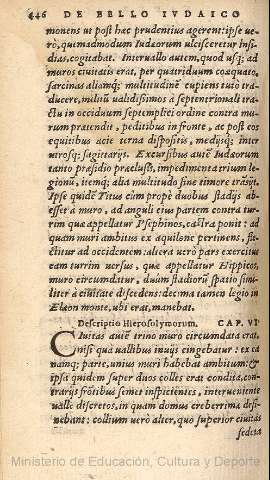 446 DE BELLO IVDAICO
monens ut post hac prudentius agerent: ipse ue-
rò, quemadmodum Iudæorum ulcisceretur insi-
dias, cogitabat. Interuallo autem, quod usq; ad
muros ciuitatis erat, per quatriduum coæquato,
sarcinas aliamq; multitudinē cupiens tuto tra-
ducere, militū ualidissimos à septentrionali tra-
ctu in occiduum septemplici ordine contra mu-
rum prætendit, peditibus in fronte, ac post eos
equitibus acie terna dispositis, medijsq; inter
utrosq; sagittarijs. Excursibus autē Iudæorum
tanto præsidio præclusis, impedimenta trium le-
gionū, itemq; alia multitudo sine timore trāsijt.
Ipse quidē Titus cùm propè duobus stadijs ab-
esset à muro, ad anguli eius partem contra tur-
rim quæ appellatur Psephinos, castra ponit: ad
quam muri ambitus ex aquilone pertinens, fle-
ctitur ad occidentem: altera uerò pars exercitus
eam turrim uersus, quæ appellatur Hippicos,
muro circundatur, duûm stadiorū spatio simi-
liter à ciuitate discedens: decima tamen legio in
Elæon monte, ubi erat, manebat.
Descriptio Hierosolymorum. CAP. VI
Ciuitas autē trino muro circumdata erat,
nisi qua uallibus inuijs cingebatur: ex ea
namq; parte, unius muri habebat ambitum: &
ipsa quidem super duos colles erat condita, con-
trarijs frōtibus semet inspicientes, interueniente
ualle discretos, in quam domus creberrimæ desi-
nebant: collium uerò alter, quo superior ciuitas
sedeta
Ministerio de Educación, Cultura y Deporte